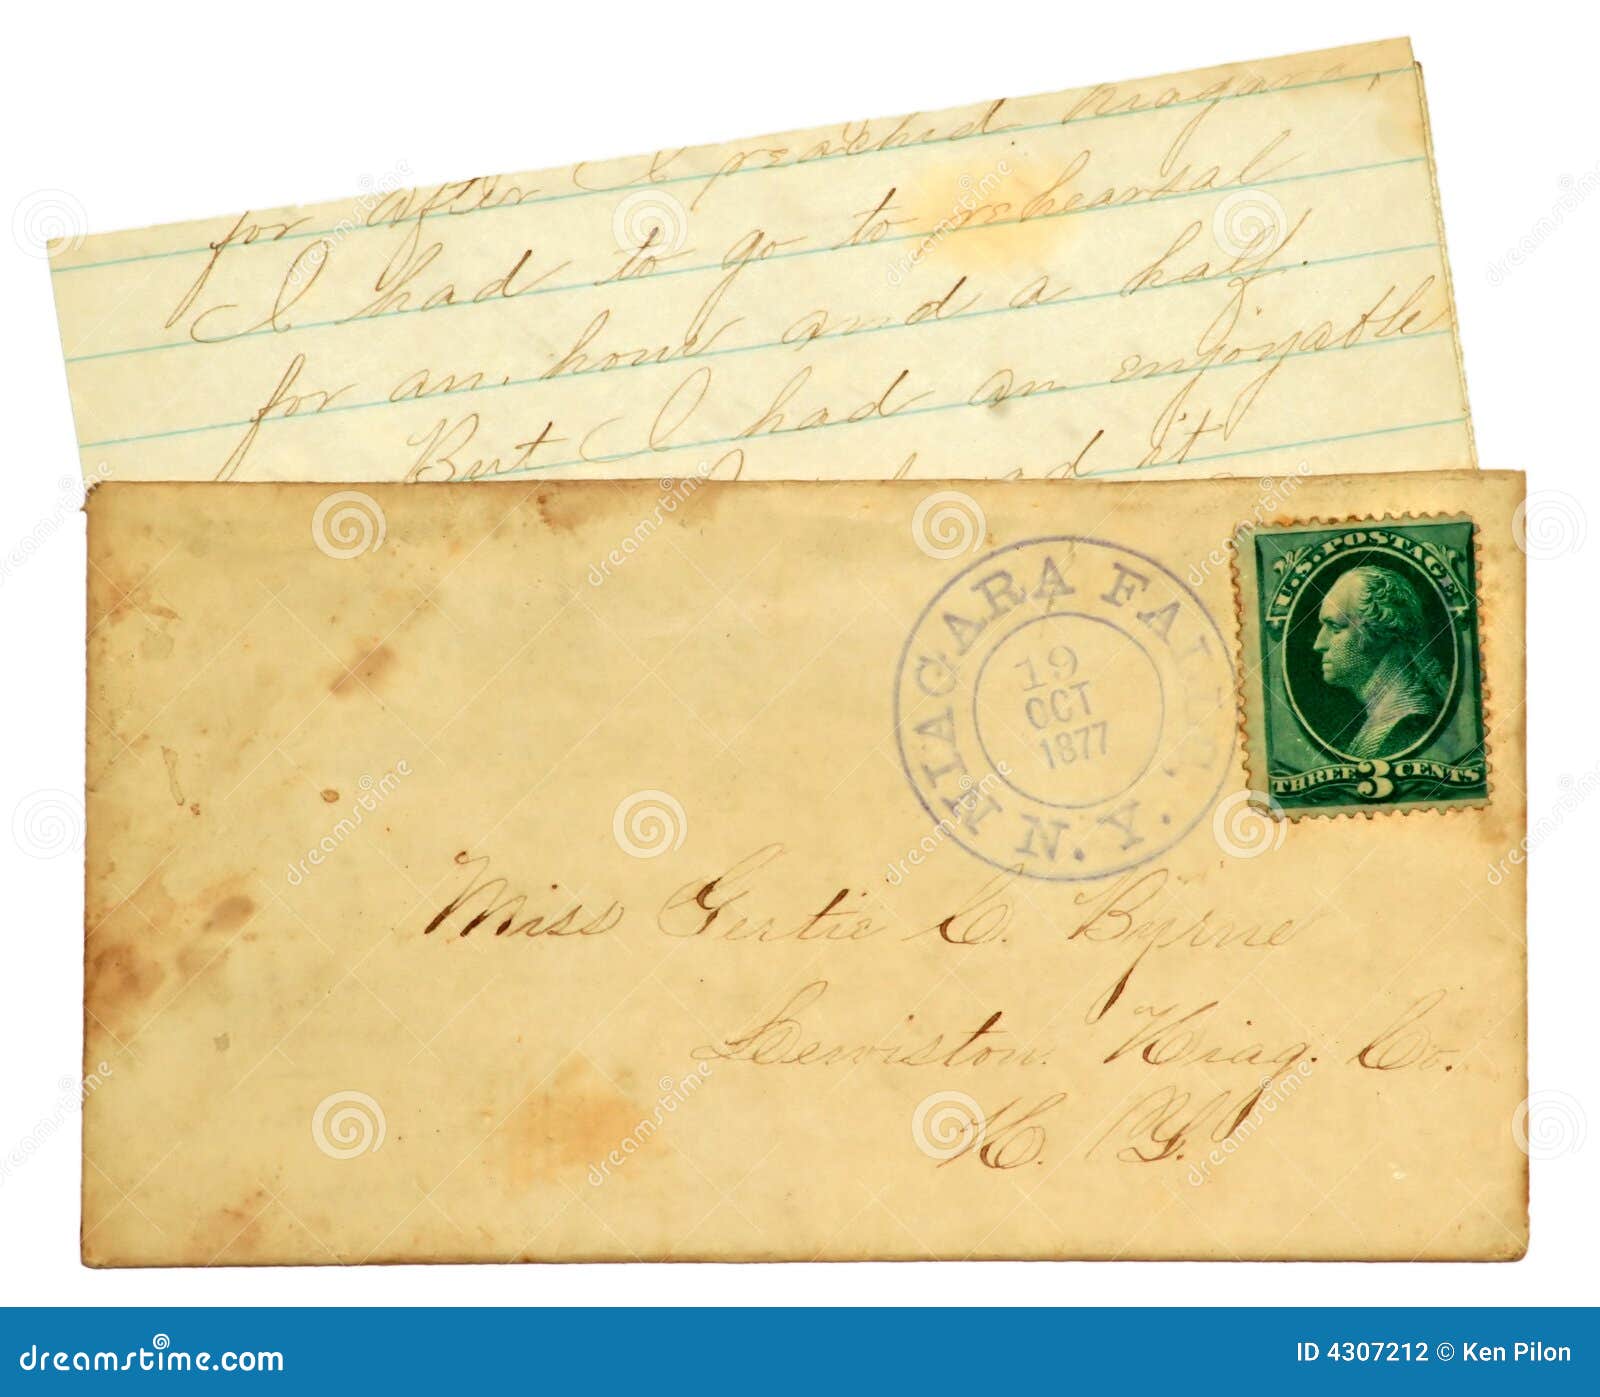 for after I reached Niagara,
I had to go to rehearsal
for an hour and a half.
But I had an enjoyable
had it
NIAGARA FALLS, N.Y.
19
OCT
1877
U.S. POSTAGE
THREE 3 CENTS
Miss Gertie C. Byrne
Lewiston. Niag. Co.
N. Y.
dreamstime.com
ID 4307212 © Ken Pilon